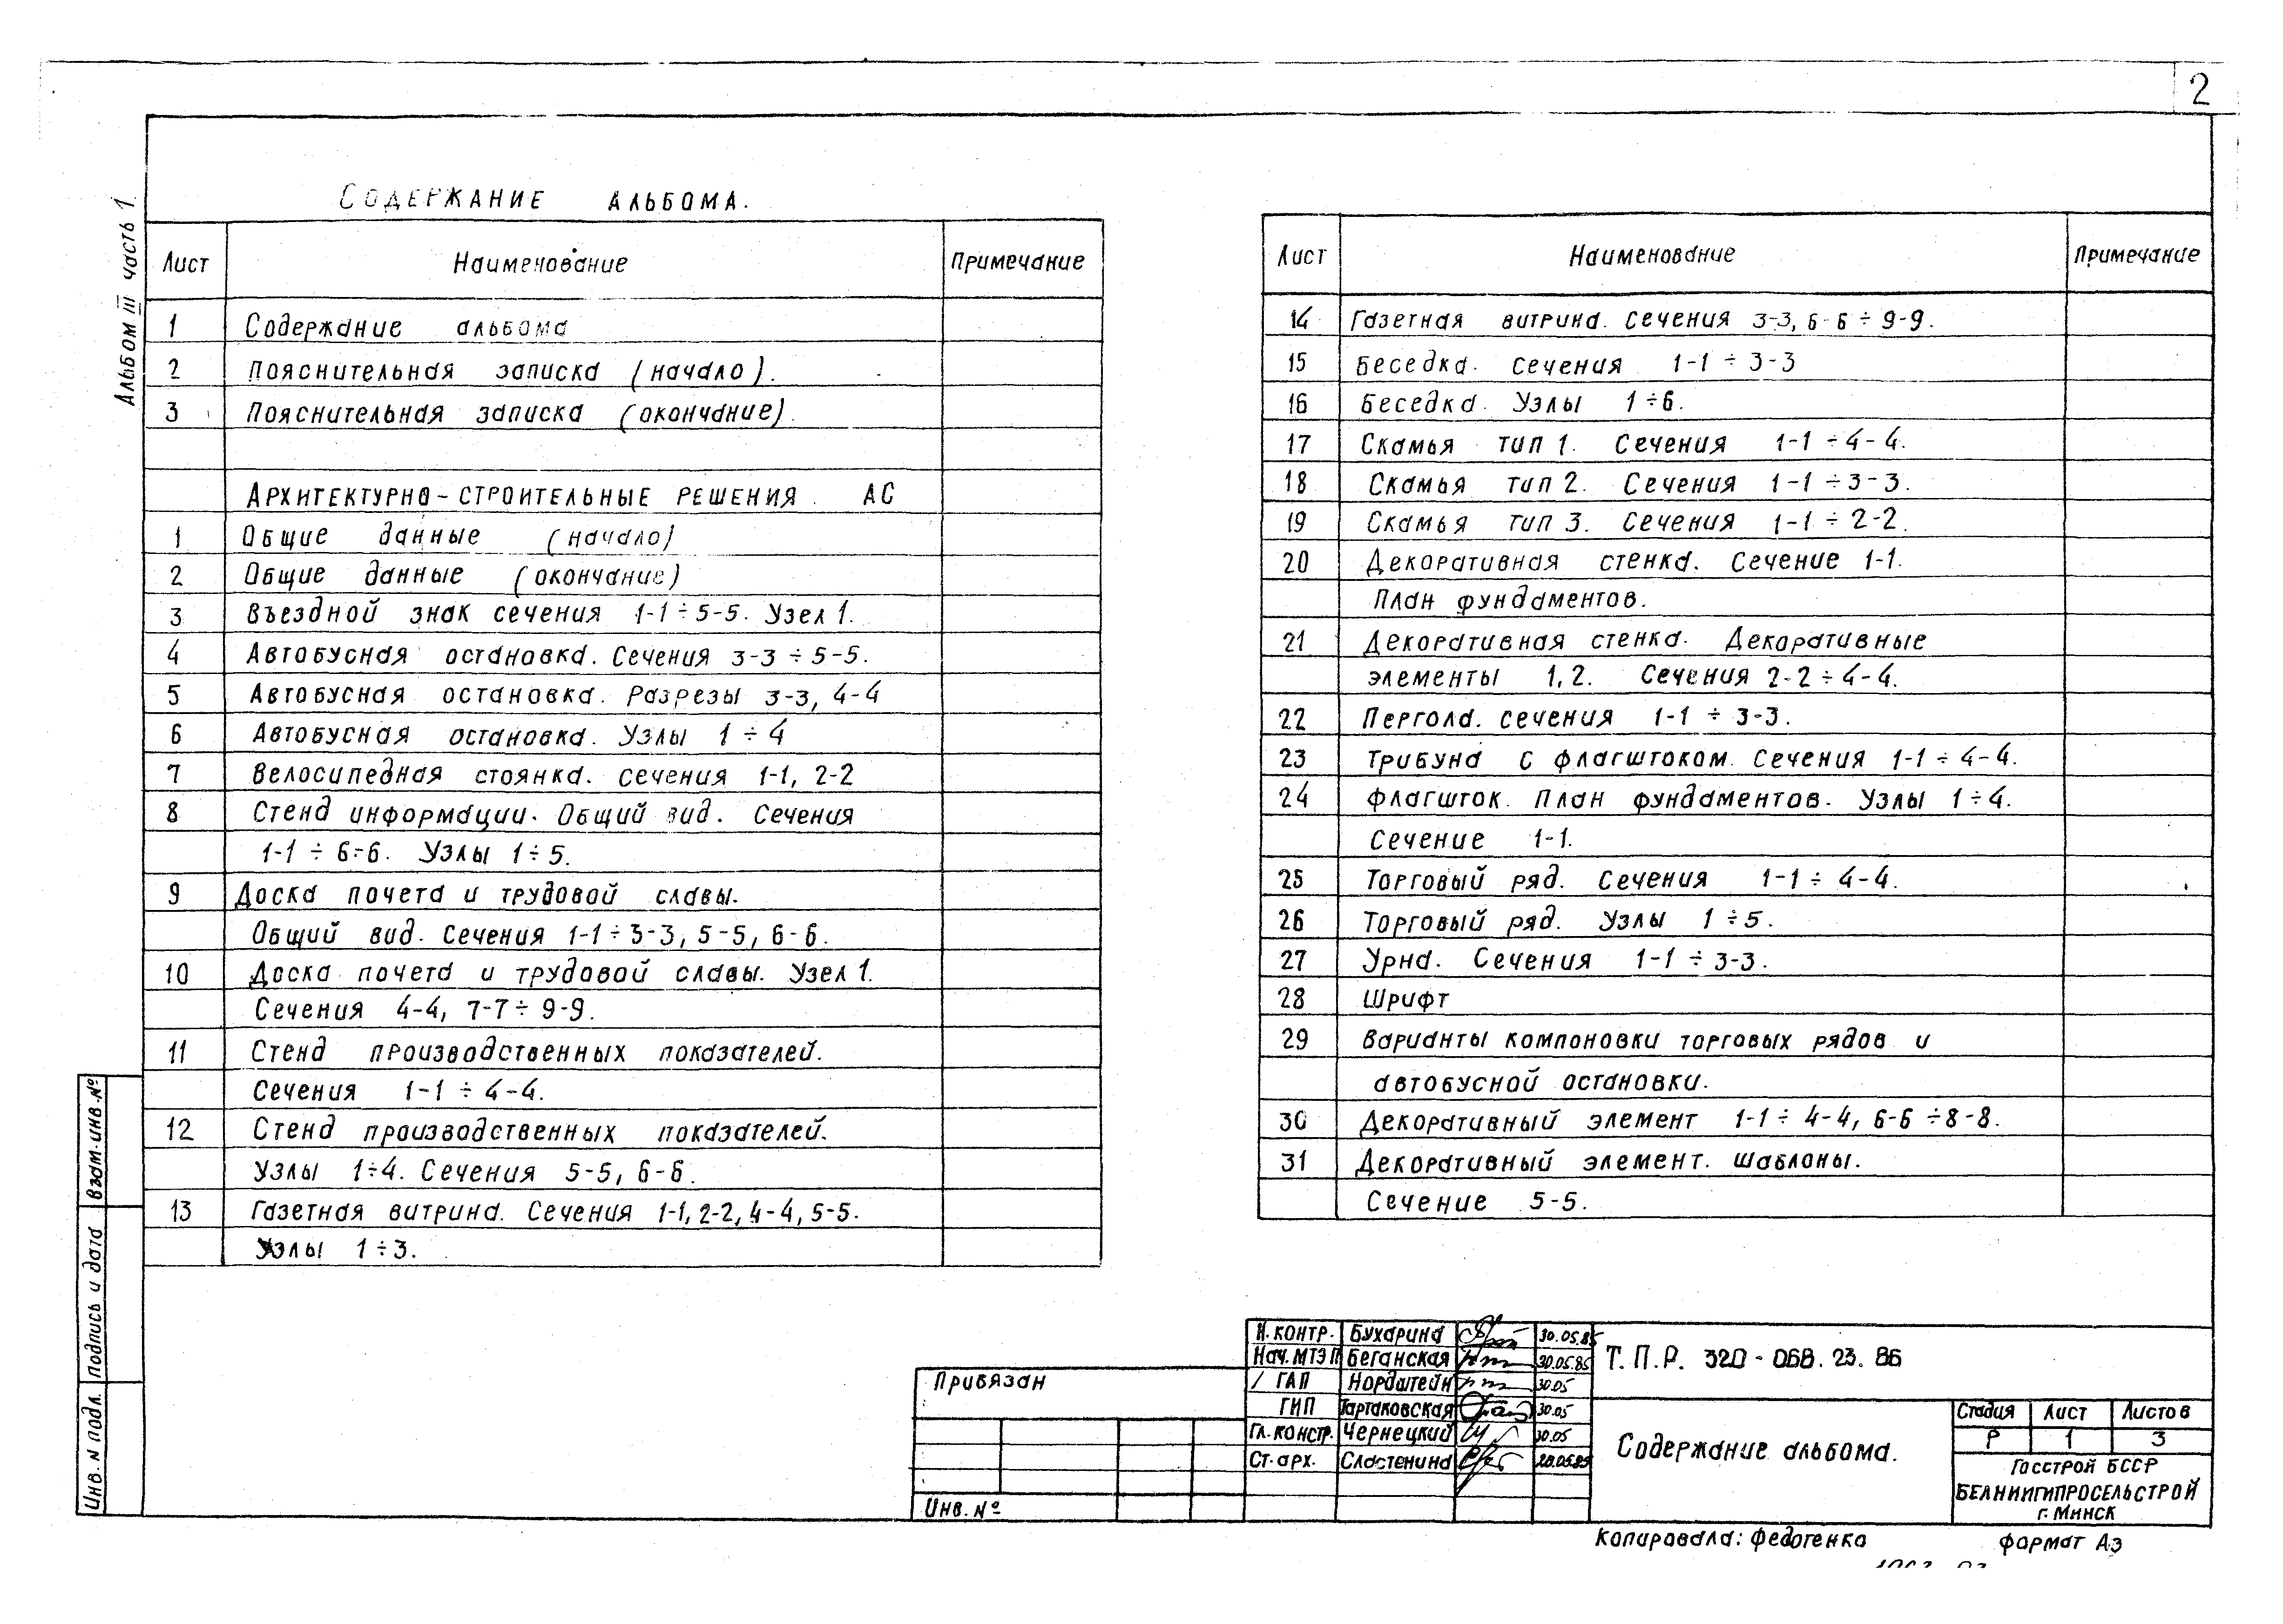 2
Альбом III часть 1
Содержание альбома.
Лист Наименование Примечание
1 Содержание альбома
2 Пояснительная записка (начало).
3 Пояснительная записка (окончание).
Архитектурно-строительные решения. АС
1 Общие данные (начало)
2 Общие данные (окончание)
3 Въездной знак сечения 1-1÷5-5. Узел 1.
4 Автобусная остановка. Сечения 3-3÷5-5.
5 Автобусная остановка. Разрезы 3-3, 4-4
6 Автобусная остановка. Узлы 1÷4
7 Велосипедная стоянка. Сечения 1-1, 2-2
8 Стенд информации. Общий вид. Сечения
1-1÷6-6. Узлы 1÷5.
9 Доска почета и трудовой славы.
Общий вид. Сечения 1-1÷3-3, 5-5, 6-6.
10 Доска почета и трудовой славы. Узел 1.
Сечения 4-4, 7-7÷9-9.
11 Стенд производственных показателей.
Сечения 1-1÷4-4.
12 Стенд производственных показателей.
Узлы 1÷4. Сечения 5-5, 6-6.
13 Газетная витрина. Сечения 1-1, 2-2, 4-4, 5-5.
Узлы 1÷3.
Лист Наименование Примечание
14 Газетная витрина. Сечения 3-3, 6-6÷9-9.
15 Беседка. Сечения 1-1÷3-3
16 Беседка. Узлы 1÷6.
17 Скамья тип 1. Сечения 1-1÷4-4.
18 Скамья тип 2. Сечения 1-1÷3-3.
19 Скамья тип 3. Сечения 1-1÷2-2.
20 Декоративная стенка. Сечение 1-1.
План фундаментов.
21 Декоративная стенка. Декоративные
элементы 1, 2. Сечения 2-2÷4-4.
22 Пергола. Сечения 1-1÷3-3.
23 Трибуна с флагштоком. Сечения 1-1÷4-4.
24 Флагшток. План фундаментов. Узлы 1÷4.
Сечение 1-1.
25 Торговый ряд. Сечения 1-1÷4-4.
26 Торговый ряд. Узлы 1÷5.
27 Урна. Сечения 1-1÷3-3.
28 Шрифт
29 Варианты компоновки торговых рядов и
автобусной остановки.
30 Декоративный элемент 1-1÷4-4, 6-6÷8-8.
31 Декоративный элемент. Шаблоны.
Сечение 5-5.
Взам.инв.№
Подпись и дата
Инв. № подл.
Привязан
Инв. №
Н.контр. Бухарина 30.05.85
Нач.МТЭП Беганская 30.05.85
ГАП Нордштейн 30.05
ГИП Тартаковская 30.05
Гл.констр. Чернецкий 30.05
Ст.арх. Сластенина 28.05.85
Т.П.Р. 320-068.23.86
Содержание альбома.
Стадия Лист Листов
Р 1 3
Госстрой БССР
БЕЛНИИГИПРОСЕЛЬСТРОЙ
г. Минск
Копировала: Федотенко
Формат А3